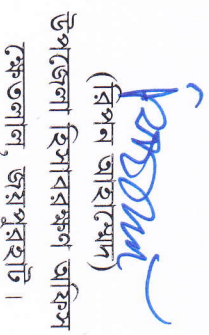 (রিপন আহাম্মেদ)
উপজেলা হিসাবরক্ষণ অফিস
ক্ষেতলাল, জয়পুরহাট।